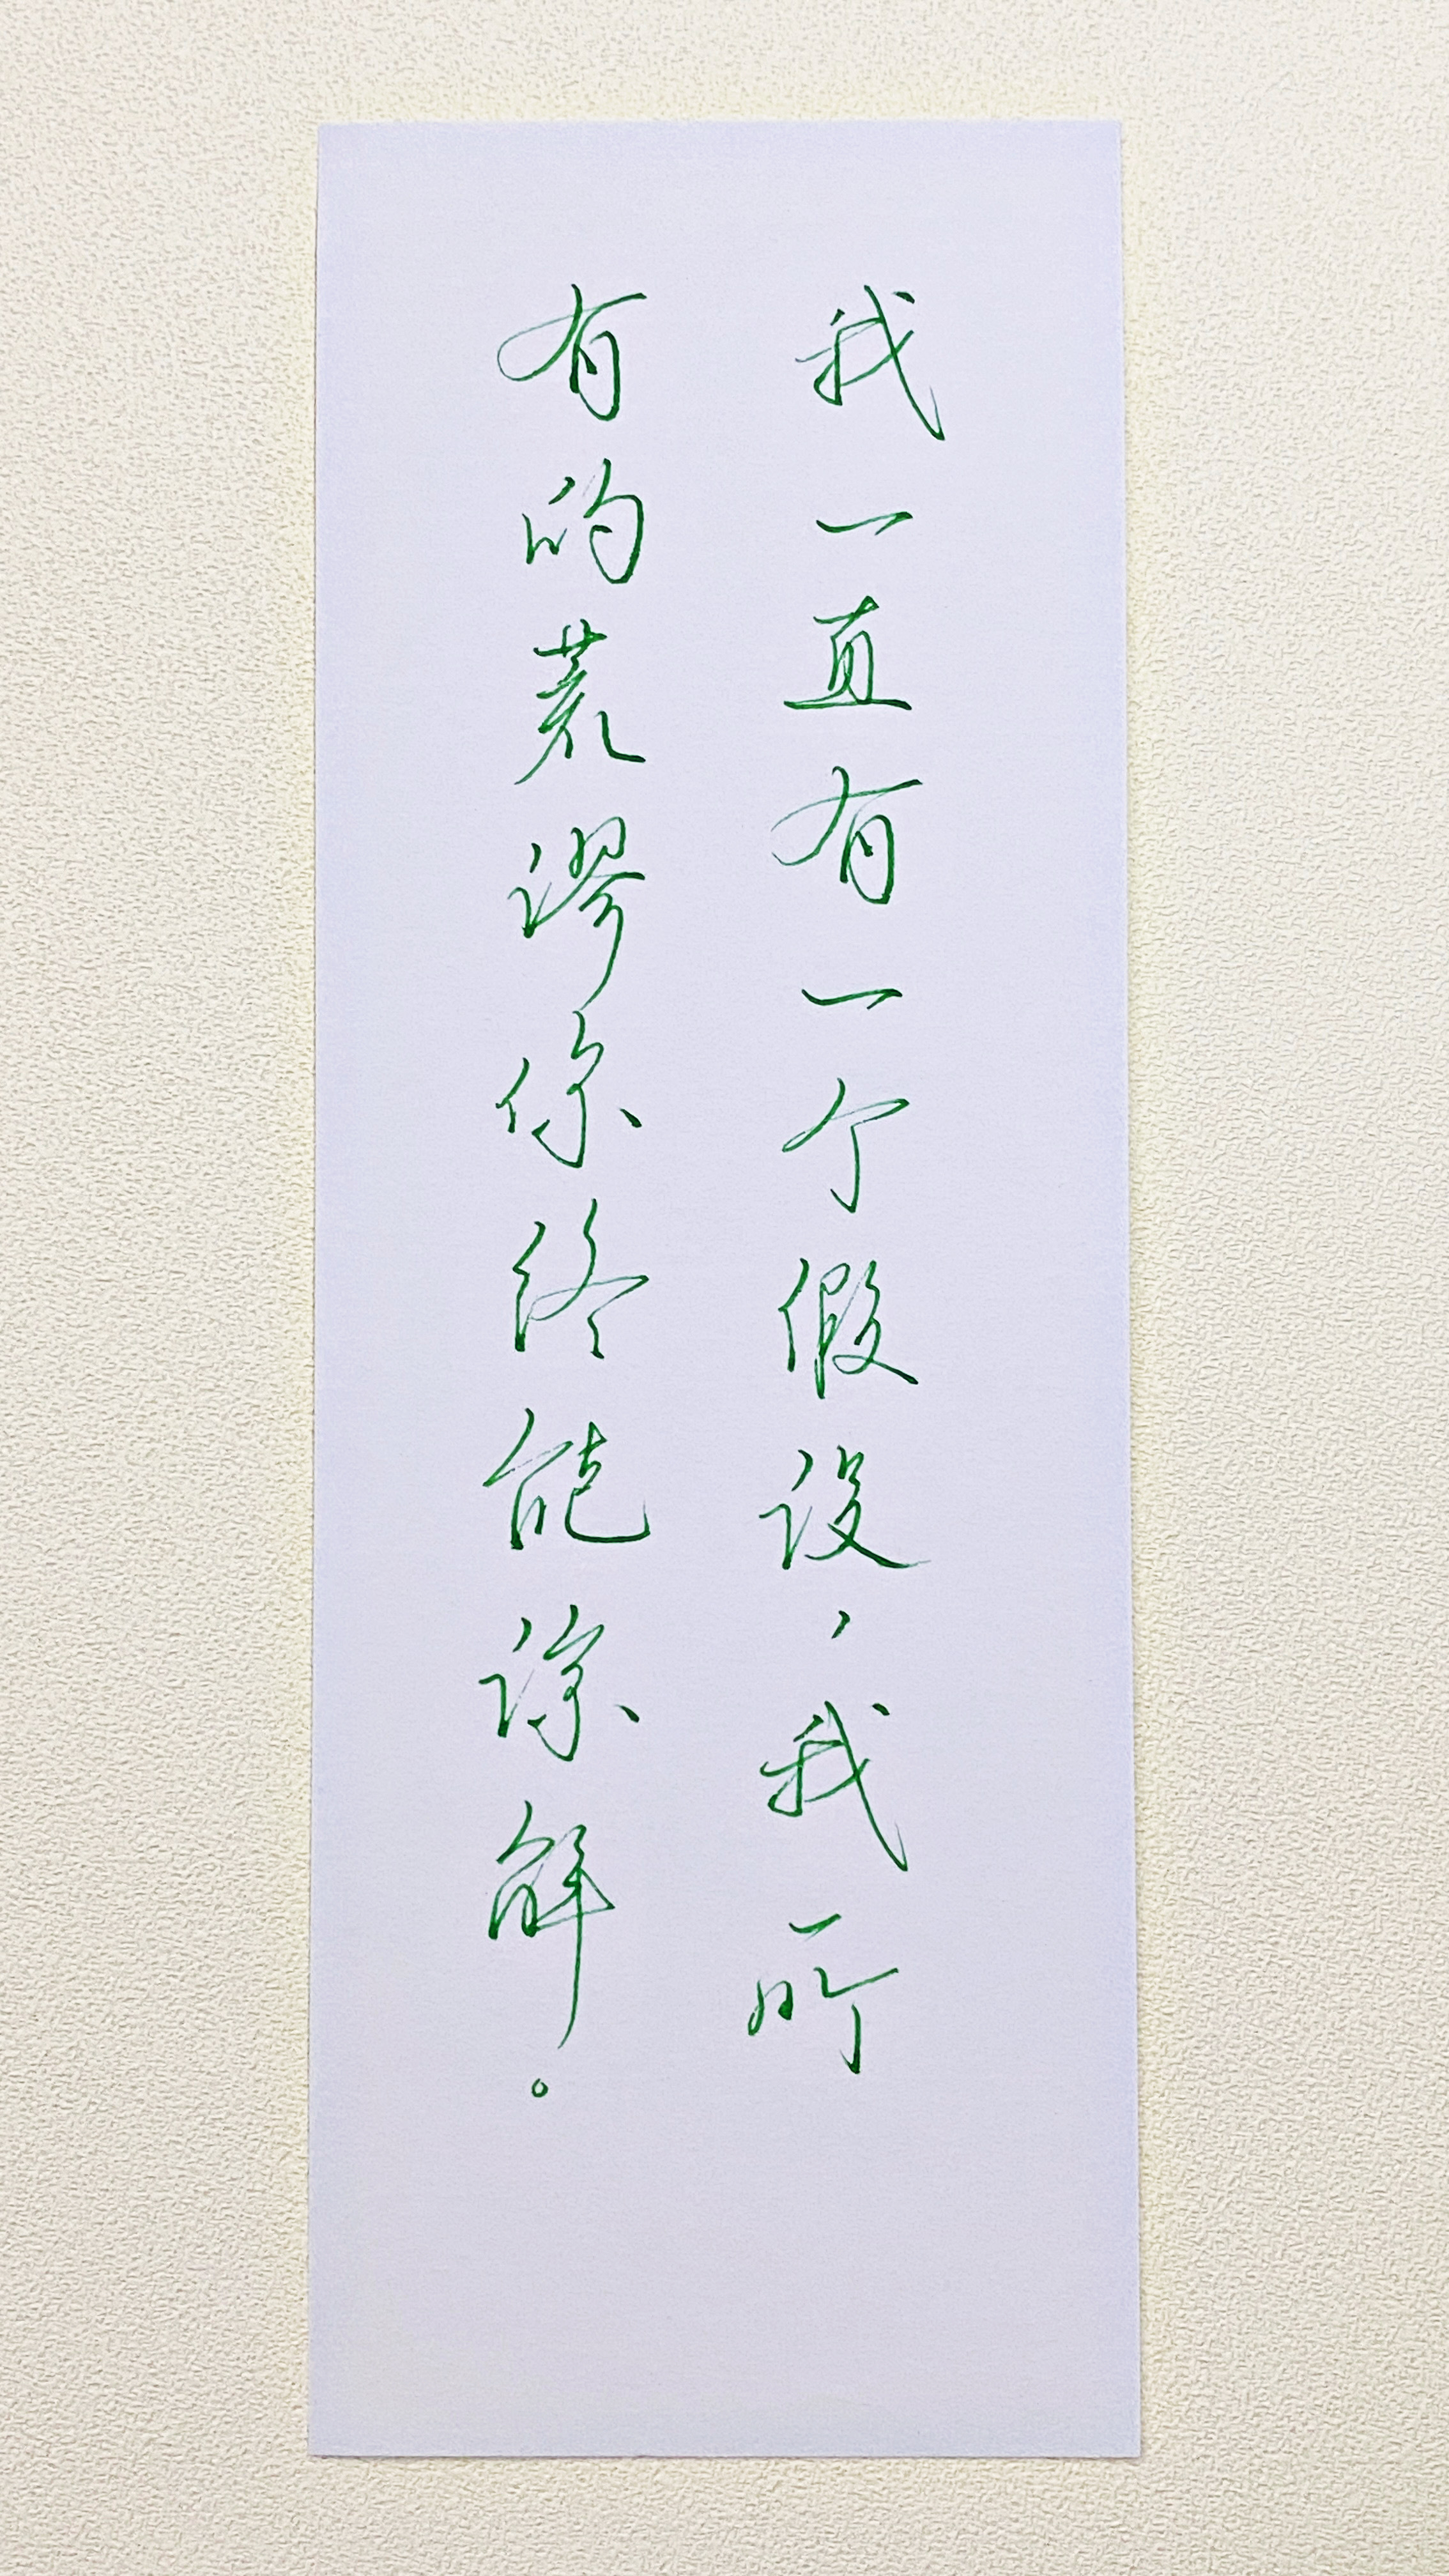 我一直有一个假设，我所
有的荒谬你终能谅解。